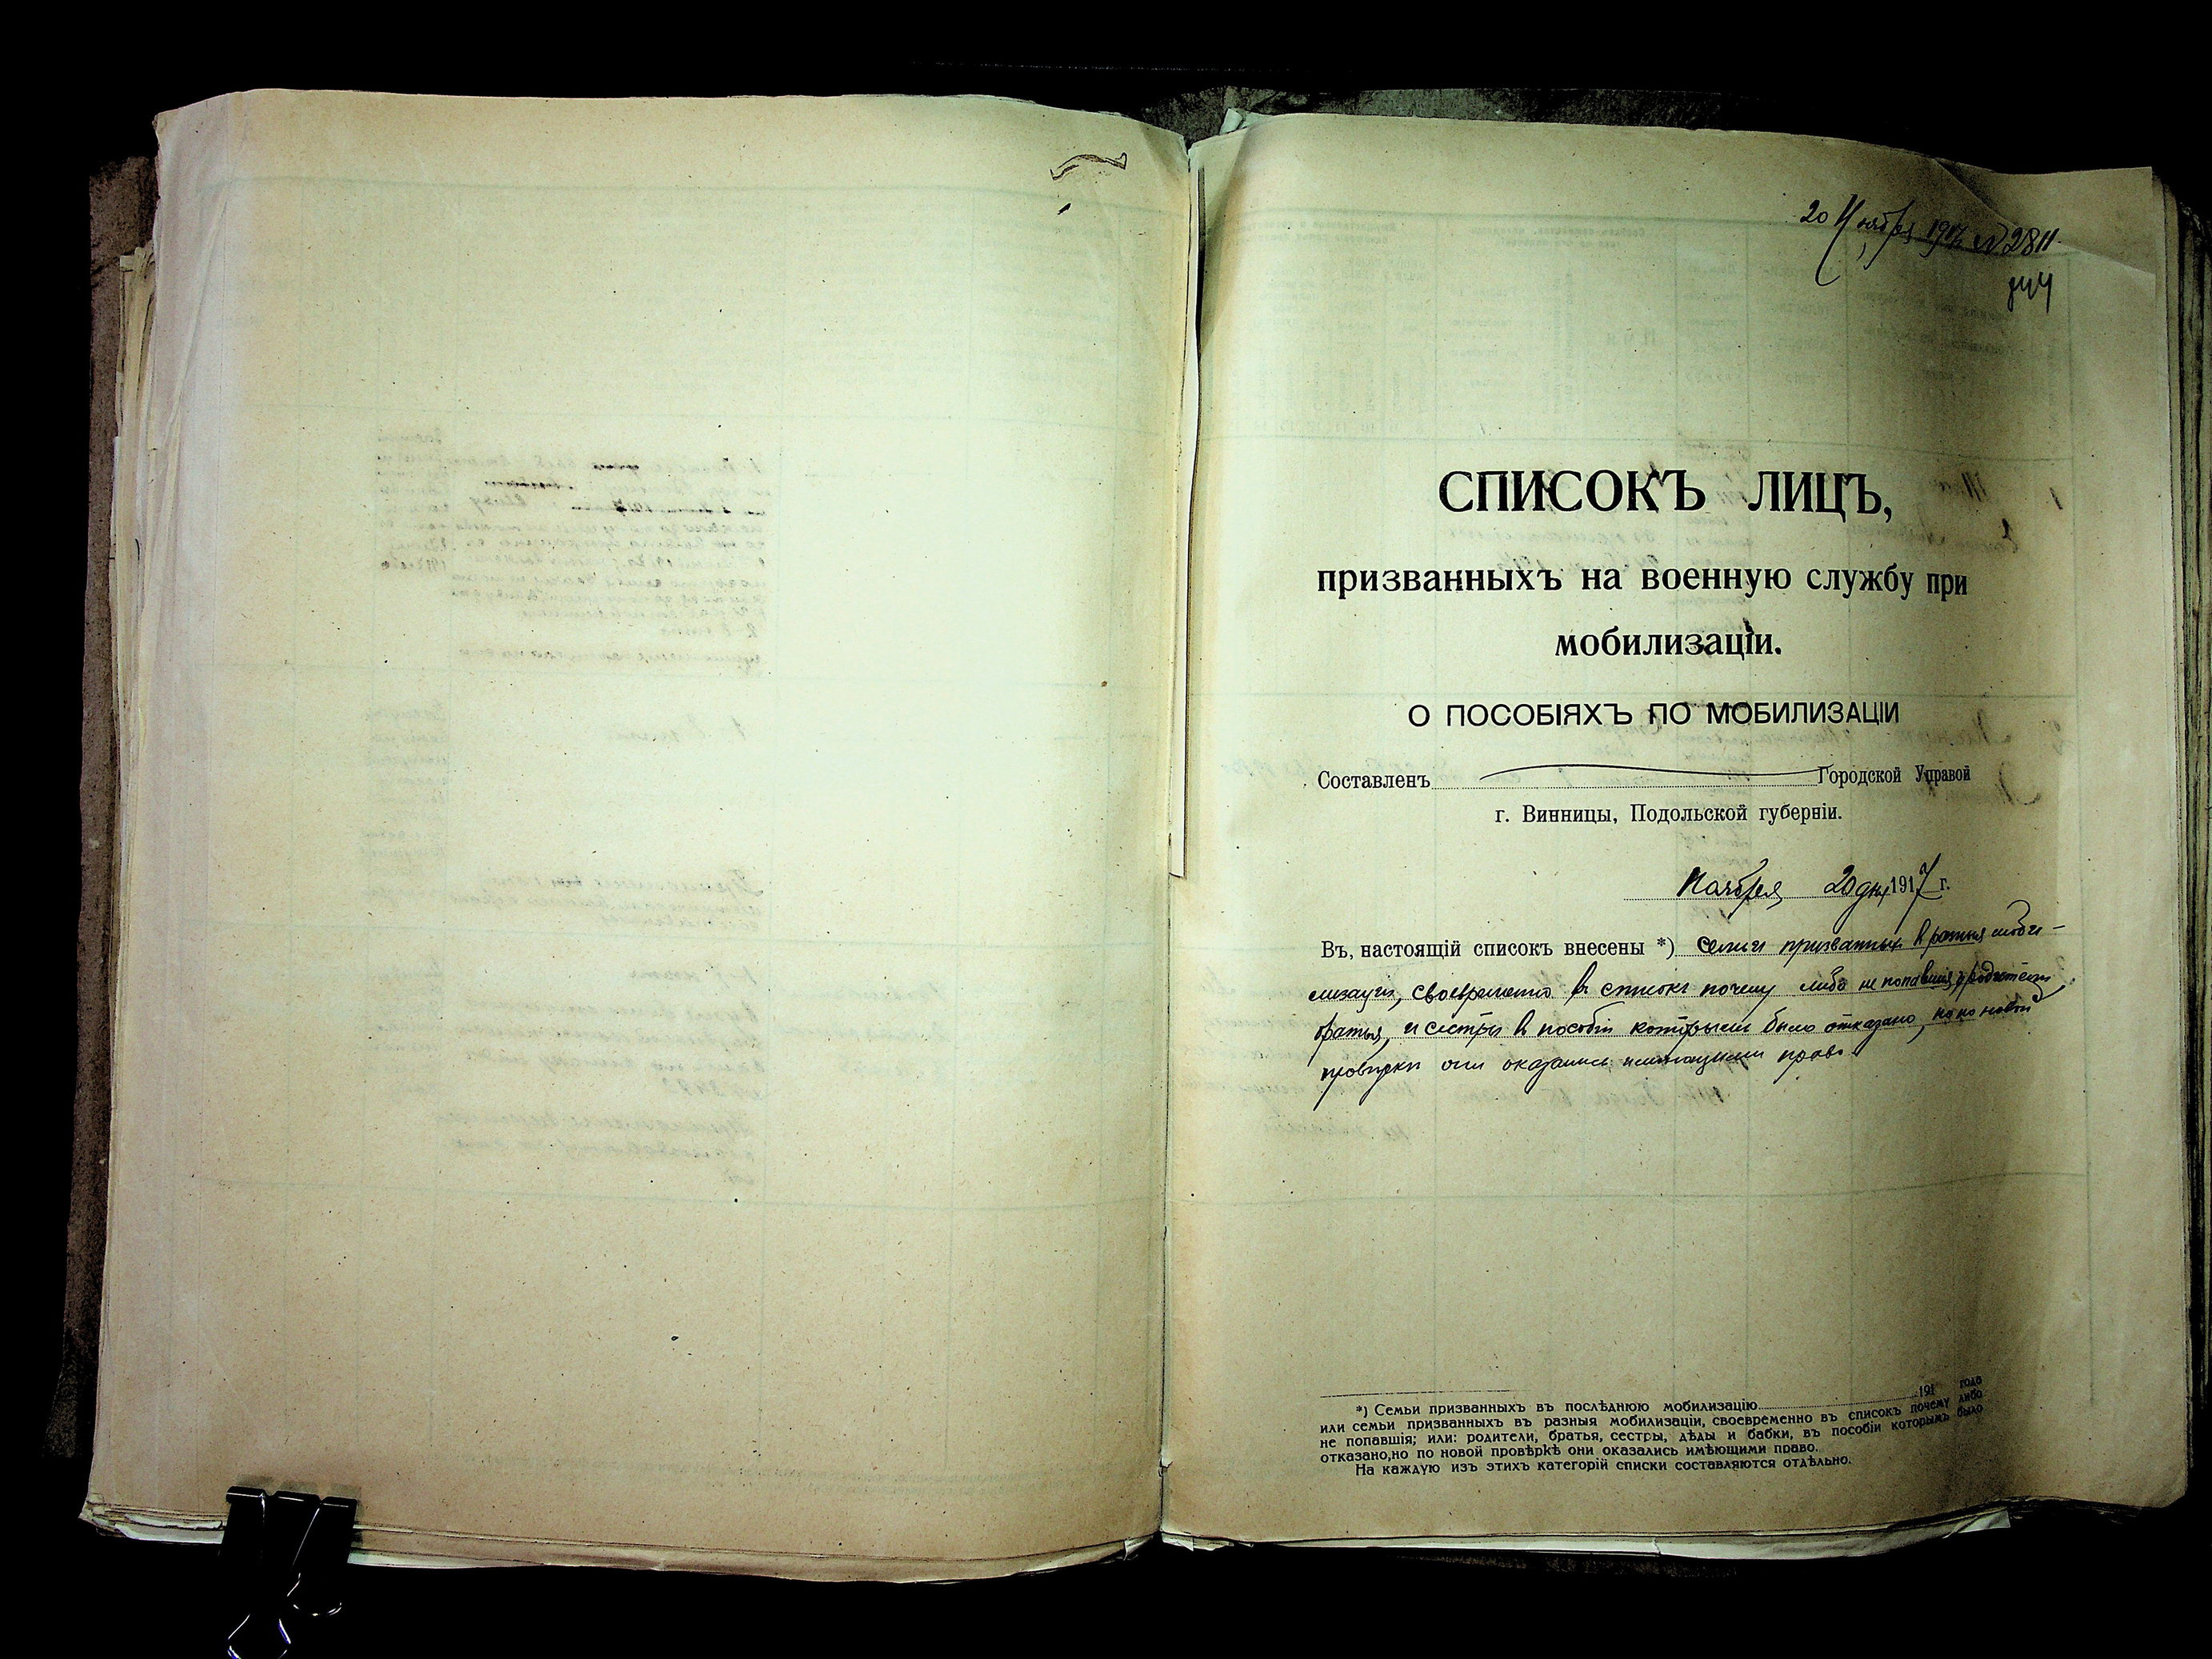 20 Ноября 1917 № 2811
СПИСОКЪ ЛИЦЪ,
призванныхъ на военную службу при
мобилизаціи.
О ПОСОБІЯХЪ ПО МОБИЛИЗАЦІИ
Составленъ Городской Управой
г. Винницы, Подольской губерніи.
Ноября 20 дня 1917 г.
Въ, настоящій списокъ внесены *) семьи призванных в разныя моби-
лизаціи, своевременно в списокъ почему либо не попавшія, родители,
братья, и сестры в пособіи которыми было отказано, но по новой
провѣрки они оказались имѣющими право
*) Семьи призванныхъ въ послѣднюю мобилизацію 191 года
или семьи призванныхъ въ разныя мобилизаціи, своевременно въ списокъ почему либо
не попавшія; или: родители, братья, сестры, дѣды и бабки, въ пособіи которымъ было
отказано, но по новой провѣркѣ они оказались имѣющими право.
На каждую изъ этихъ категорій списки составляются отдѣльно.